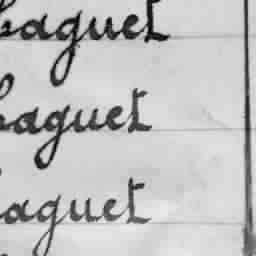 baguet
baguet
baguet